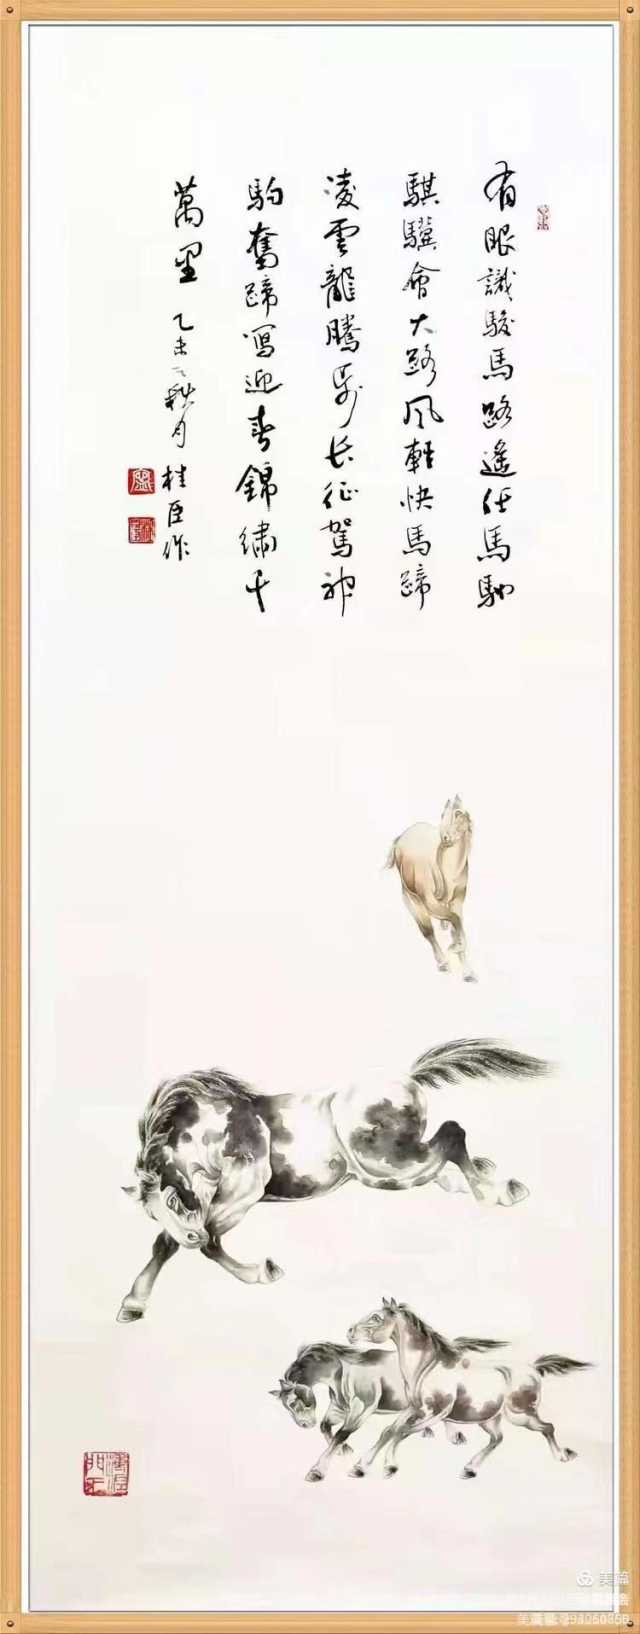 有眼識駿馬路遙任馬馳
騏驥會大路風輕快馬蹄
凌雲龍騰步長征駕神
駒奮蹄寫迎春錦繡千
萬里
乙未之秋月
桂臣作
美篇